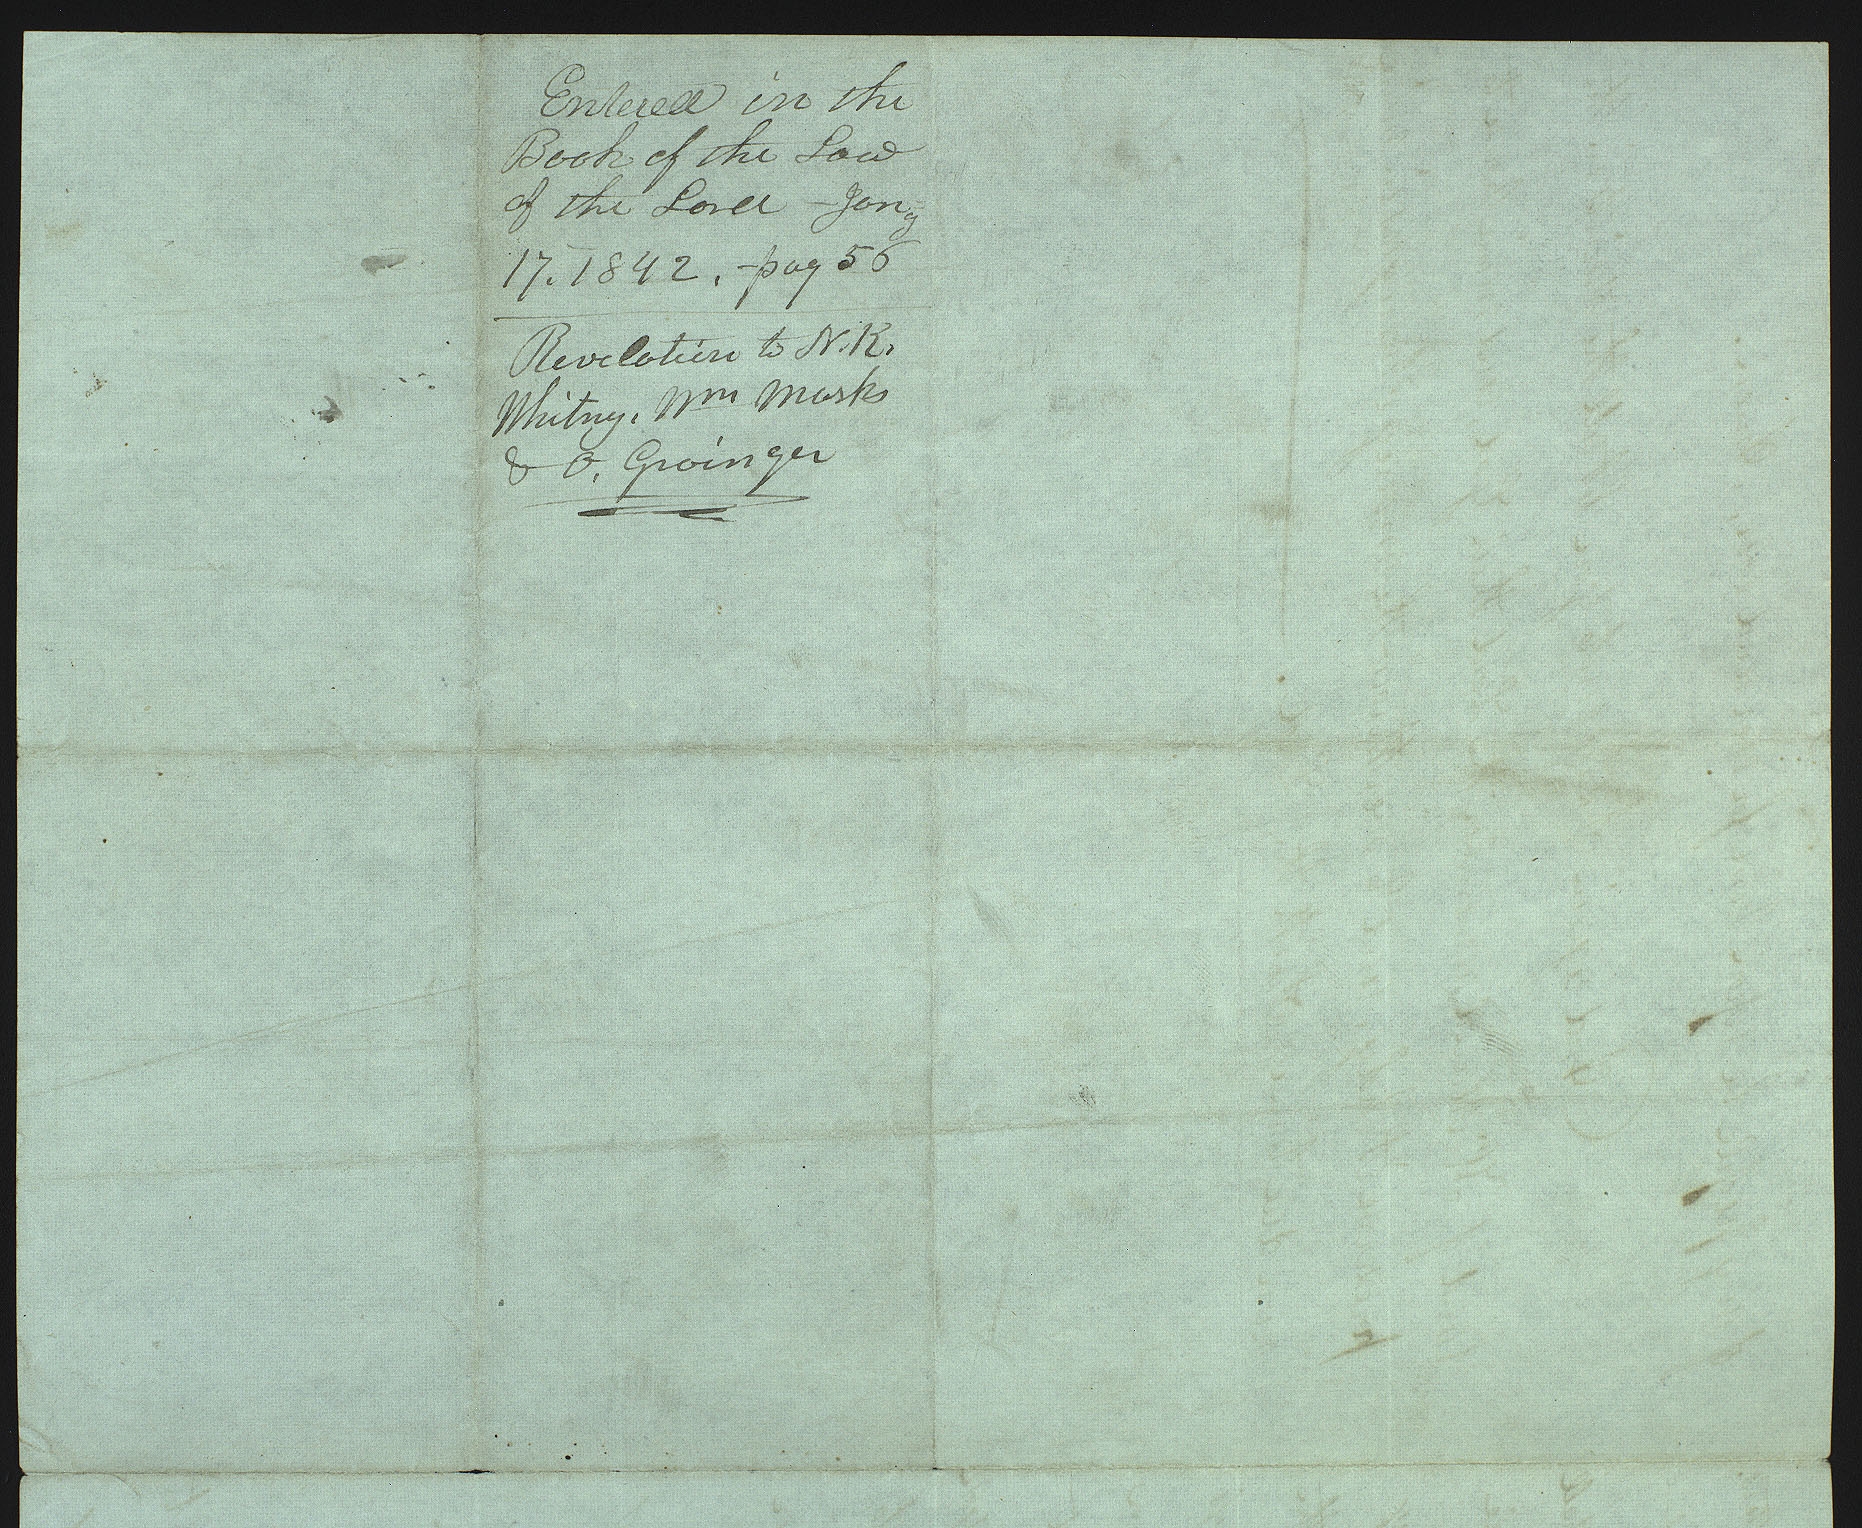 Entered in the
Book of the Law
of the Lord - Jany
17. 1842. - pag 56
Revelation to N. K.
Whitny, Wm Marks
& O. Grainger